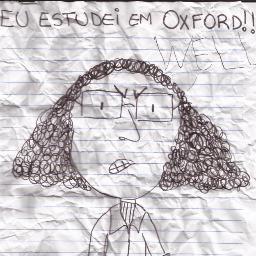 EU ESTUDEI EM OXFORD!!
WELL